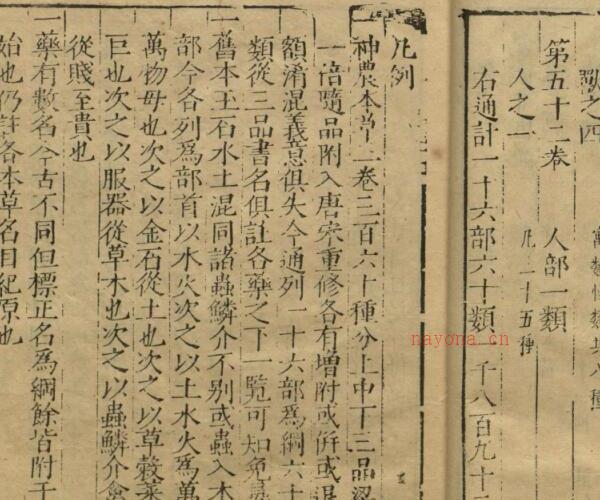 獸之四
第五十二卷 人部一類
人之一 凡二十五種
右通計一十六部六十類一千八百九十
凡例
一神農本草三卷三百六十種分上中下三品梁
一倍隨品附入唐宋重修各有增附或併或退
額淆混義意俱失今通列一十六部為綱六十
類從三品書名俱註各藥之下一覽可知免尋
一舊本玉石水土混同諸蟲鱗介不別或蟲入木
部今各列為部首以水火次之以土水火為萬
萬物母也次之以金石從土也次之以草穀菜
巨也次之以服器從草木也次之以蟲鱗介禽
從賤至貴也
一藥有數名今古不同但標正名為綱餘皆附于
始也仍註各本草名目紀原也
nayona.cn